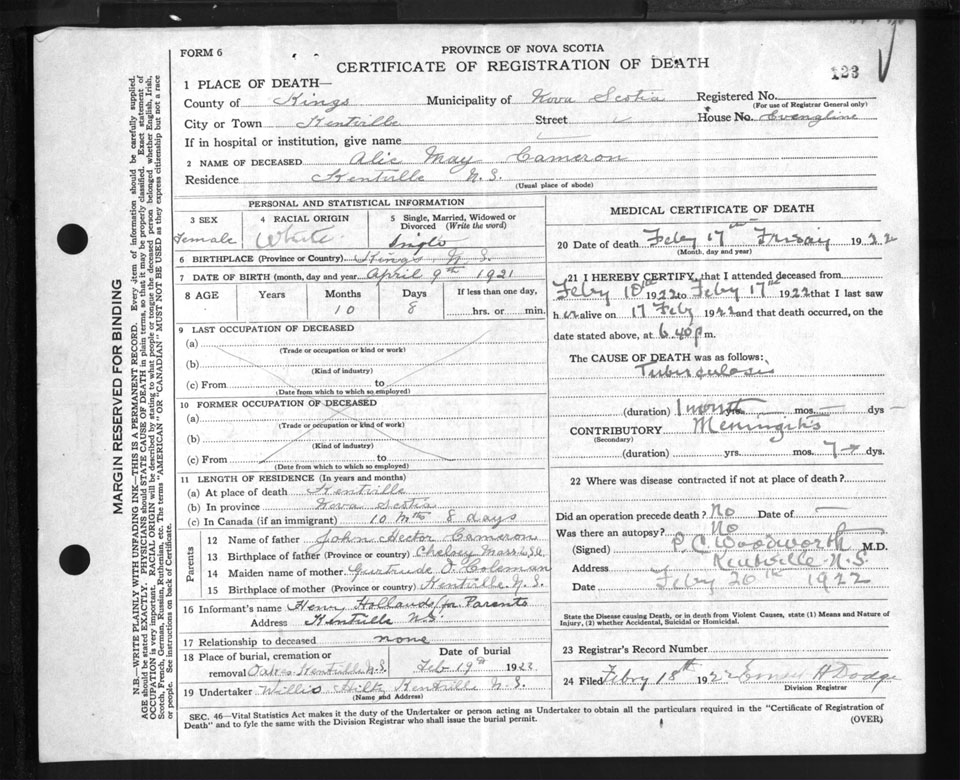 FORM 6
PROVINCE OF NOVA SCOTIA
CERTIFICATE OF REGISTRATION OF DEATH
123
1 PLACE OF DEATH—
County of Kings Municipality of Nova Scotia Registered No.
(For use of Registrar General only)
City or Town Kentville Street House No. Evengline
If in hospital or institution, give name
2 NAME OF DECEASED Alic May Cameron
Residence Kentville N.S.
(Usual place of abode)
PERSONAL AND STATISTICAL INFORMATION
3 SEX
Female
4 RACIAL ORIGIN
White
5 Single, Married, Widowed or Divorced (Write the word)
Single
6 BIRTHPLACE (Province or Country) Kings N.S.
7 DATE OF BIRTH (month, day and year) April 9th 1921
8 AGE Years Months Days If less than one day,
10 8 hrs. or min.
9 LAST OCCUPATION OF DECEASED
(a)
(Trade or occupation or kind or work)
(b)
(Kind of industry)
(c) From to
(Date from which to which so employed)
10 FORMER OCCUPATION OF DECEASED
(a)
(Trade or occupation or kind of work)
(b)
(Kind of industry)
(c) From to
(Date from which to which so employed)
11 LENGTH OF RESIDENCE (In years and months)
(a) At place of death Kentville
(b) In province Nova Scotia
(c) In Canada (if an immigrant) 10 Mths 8 days
Parents
12 Name of father John Hector Cameron
13 Birthplace of father (Province or country) Chelsey Mass
14 Maiden name of mother Gurtrude O. Coleman
15 Birthplace of mother (Province or country) Kentville N.S.
16 Informant's name Henry Hollands for Parents
Address Kentville N.S.
17 Relationship to deceased none
18 Place of burial, cremation or removal Oaks Kentville N.S.
Date of burial
Feb 19th 1922
19 Undertaker Willis Hiltz Kentville N.S.
(Name and Address)
MEDICAL CERTIFICATE OF DEATH
20 Date of death Feby 17th Friday 1922
(Month, day and year)
21 I HEREBY CERTIFY, that I attended deceased from
Feby 10th 1922 to Feby 17th 1922 that I last saw
h er alive on 17 Feby 1922 and that death occurred, on the
date stated above, at 6.40 p m.
The CAUSE OF DEATH was as follows:
Tuberculosis
(duration) 1 month yrs. mos. dys
CONTRIBUTORY Meningitis
(Secondary)
(duration) yrs. mos. 7 dys.
22 Where was disease contracted if not at place of death?
Did an operation precede death? No Date of
Was there an autopsy? No
(Signed) P.C. Woodworth M.D.
Address Kentville N.S.
Date Feby 20th 1922
State the Disease causing Death, or in death from Violent Causes, state (1) Means and Nature of
Injury, (2) whether Accidental, Suicidal or Homicidal.
23 Registrar's Record Number
24 Filed Febry 18th 1922 Ernest H Dodge
Division Registrar
SEC. 46—Vital Statistics Act makes it the duty of the Undertaker or person acting as Undertaker to obtain all the particulars required in the "Certificate of Registration of
Death" and to fyle the same with the Division Registrar who shall issue the burial permit.
(OVER)
MARGIN RESERVED FOR BINDING
N.B.—WRITE PLAINLY WITH UNFADING INK—THIS IS A PERMANENT RECORD. Every item of information should be carefully supplied.
AGE should be stated EXACTLY. PHYSICIANS should STATE CAUSE OF DEATH in plain terms, so that it may be properly classified. Exact statement of
OCCUPATION is very important. RACIAL ORIGIN will be described by stating to what people or tongue the deceased person belonged whether English, Irish,
Scotch, French, German, Russian, Ruthenian, etc. The terms "AMERICAN" or "CANADIAN" MUST NOT BE USED as they express citizenship but not a race
or people. See instructions on back of Certificate.